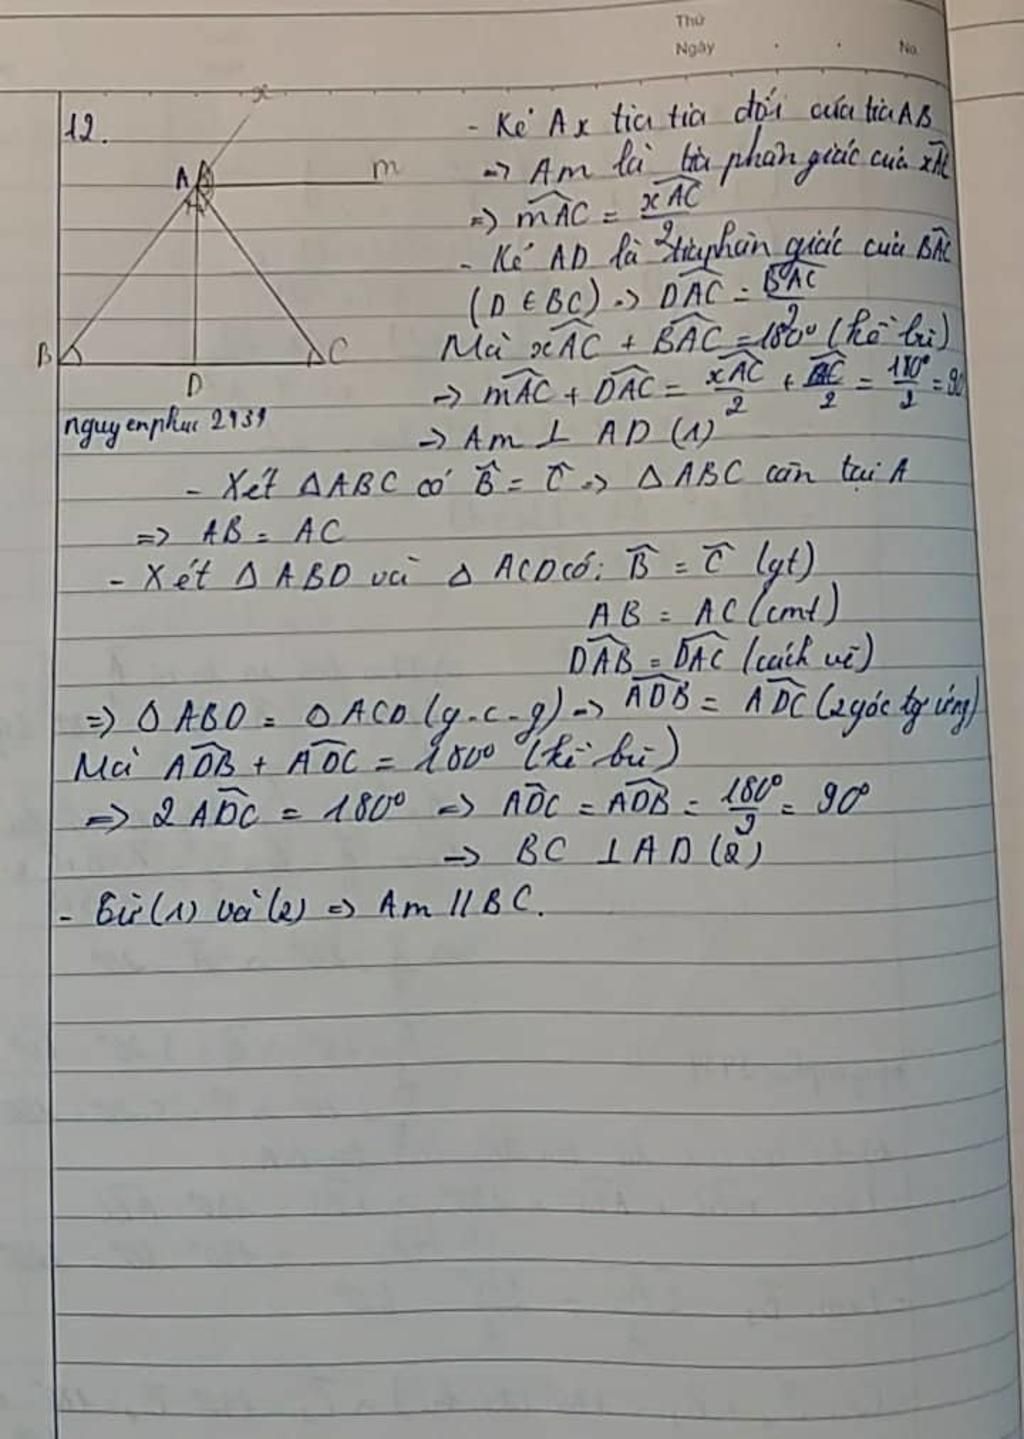 Thứ
Ngày . . No.
12.
x
A
m
B
C
D
nguyenphuc 2939
- Kẻ Ax tia tia đối của tia AB
=> Am là tia phân giác của xAC
=> mAC = xAC/2
- Kẻ AD là tia phân giác của BAC
(D ∈ BC) => DAC = BAC/2
Mà xAC + BAC = 180° (kề bù)
=> mAC + DAC = xAC/2 + BAC/2 = 180°/2 = 90
=> Am ⊥ AD (1)
- Xét △ABC có B̂ = Ĉ => △ABC cân tại A
=> AB = AC
- Xét △ABD và △ACD có: B̂ = Ĉ (gt)
AB = AC (cmt)
DAB = DAC (cách vẽ)
=> △ABD = △ACD (g-c-g) => ADB = ADC (2 góc tg ứng)
Mà ADB + ADC = 180° (kề bù)
=> 2ADC = 180° => ADC = ADB = 180°/2 = 90°
=> BC ⊥ AD (2)
- Từ (1) và (2) => Am // BC.